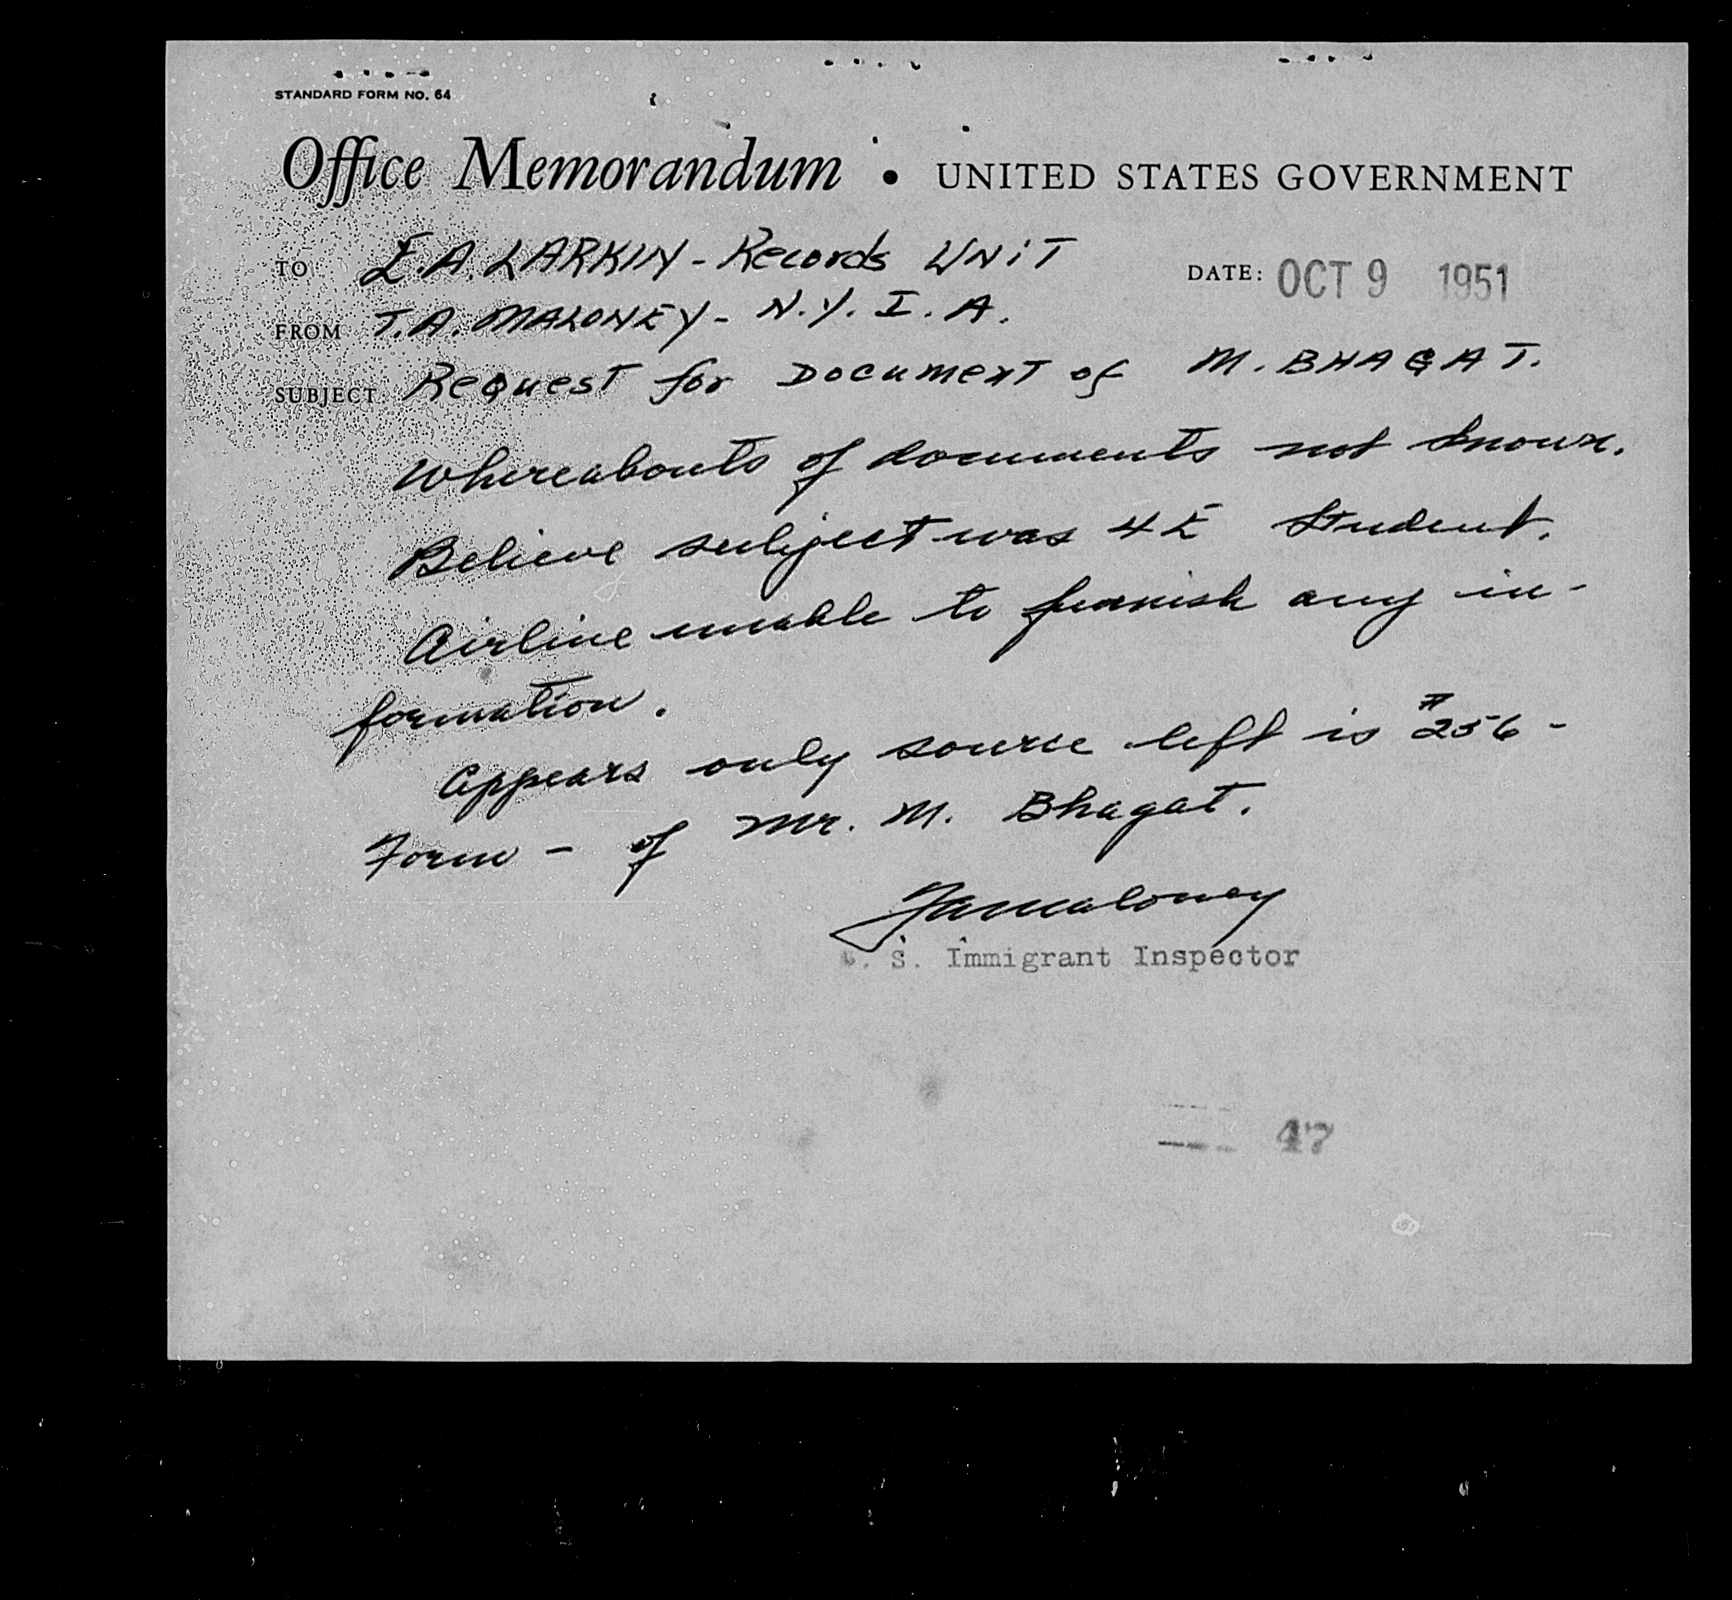 STANDARD FORM NO. 64
Office Memorandum • UNITED STATES GOVERNMENT
TO E.A. LARKIN - Records UNIT DATE: OCT 9 1951
FROM T.A. MALONEY - N.Y.I.A.
SUBJECT: Request for Document of M. BHAGAT.
Whereabouts of documents not known.
Believe subject was 4E Student.
Airline unable to furnish any in-
formation.
Appears only source left is #256 -
Form - of Mr. M. Bhagat.
TAMaloney
U. S. Immigrant Inspector
47